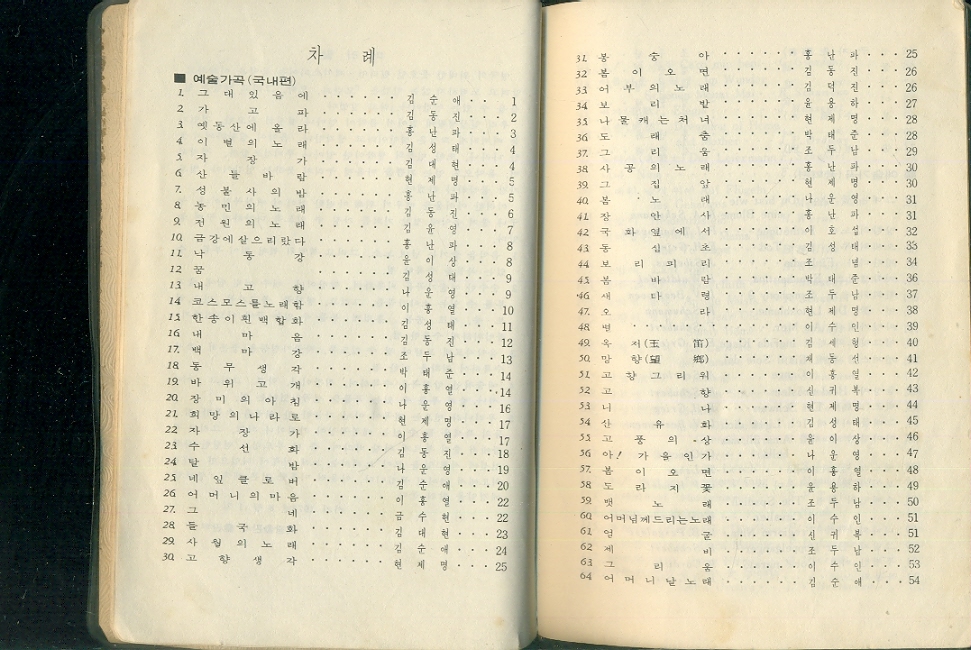 차 례
■ 예술가곡(국내편)
1. 그대있음에 김순애 1
2. 가고파 김동진 2
3. 옛동산에올라 홍난파 3
4. 이별의노래 김성태 4
5. 자장가 김대현 4
6. 산들바람 현제명 5
7. 성불사의밤 홍난파 5
8. 농민의노래 김동진 6
9. 전원의노래 김윤영 7
10. 금강에살으리랏다 홍난파 8
11. 낙동강 윤이상 8
12. 꿈 김성태 9
13. 내고향 나운영 9
14. 코스모스를노래함 이흥열 10
15. 한송이흰백합화 김성태 11
16. 내마음 김동진 12
17. 백마강 조두남 13
18. 동무생각 박태준 14
19. 바위고개 이흥열 14
20. 장미의아침 나운영 16
21. 희망의나라로 현제명 17
22. 자장가 이흥열 17
23. 수선화 김동진 18
24. 달밤 나운영 19
25. 네잎클로버 김순애 20
26. 어머니의마음 이흥열 22
27. 그네 금수현 22
28. 들국화 김대현 23
29. 사월의노래 김순애 24
30. 고향생각 현제명 25
31. 봉숭아 홍난파 25
32. 봄이오면 김동진 26
33. 어부의노래 김덕진 26
34. 보리밭 윤용하 27
35. 나물캐는처녀 현제명 28
36. 도래춤 박태준 28
37. 그리움 조두남 29
38. 사공의노래 홍난파 30
39. 그집앞 현제명 30
40. 봄노래 나운영 31
41. 장안사 홍난파 31
42. 국화옆에서 이호섭 32
43. 동심초 김성태 33
44. 보리피리 조념 34
45. 봄바람 박태준 36
46. 새타령 조두남 37
47. 오라 현제명 38
48. 별 이수인 39
49. 옥저(玉笛) 김세형 40
50. 망향(望鄕) 채동선 41
51. 고향그리워 이흥열 42
52. 고향 신귀복 43
53. 니나 현제명 44
54. 산유화 김성태 45
55. 고풍의상 윤이상 46
56. 아! 가을인가 나운영 47
57. 봄이오면 이흥열 48
58. 도라지꽃 윤용하 49
59. 뱃노래 조두남 50
60. 어머님께드리는노래 이수인 51
61. 얼굴 신귀복 51
62. 제비 조두남 52
63. 그리움 이수인 53
64. 어머니날노래 김순애 54